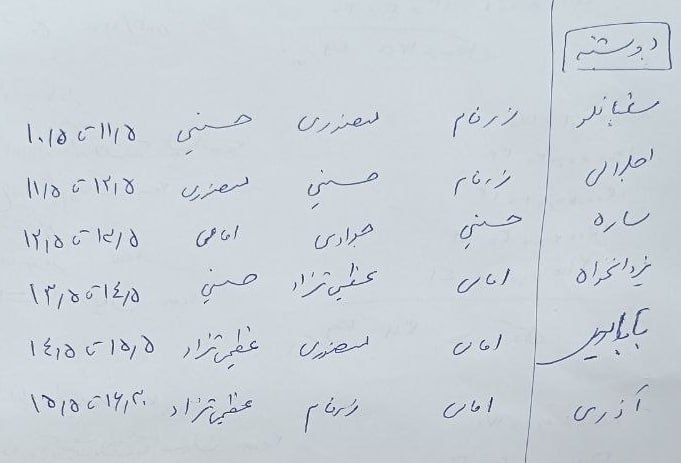 دوشنبه
شعبانلو زرفام منصوری حسنی ۱۰/۵ تا ۱۱/۵
اجلالی زرفام حسنی منصوری ۱۱/۵ تا ۱۲/۵
ساره حسنی جوادی امامی ۱۲/۵ تا ۱۳/۵
یزدانخواه امامی عظیمی‌نژاد حسنی ۱۳/۵ تا ۱۴/۵
بابایی امامی منصوری عظیمی‌نژاد ۱۴/۵ تا ۱۵/۵
آذری امامی زرفام عظیمی‌نژاد ۱۵/۵ تا ۱۶/۳۰